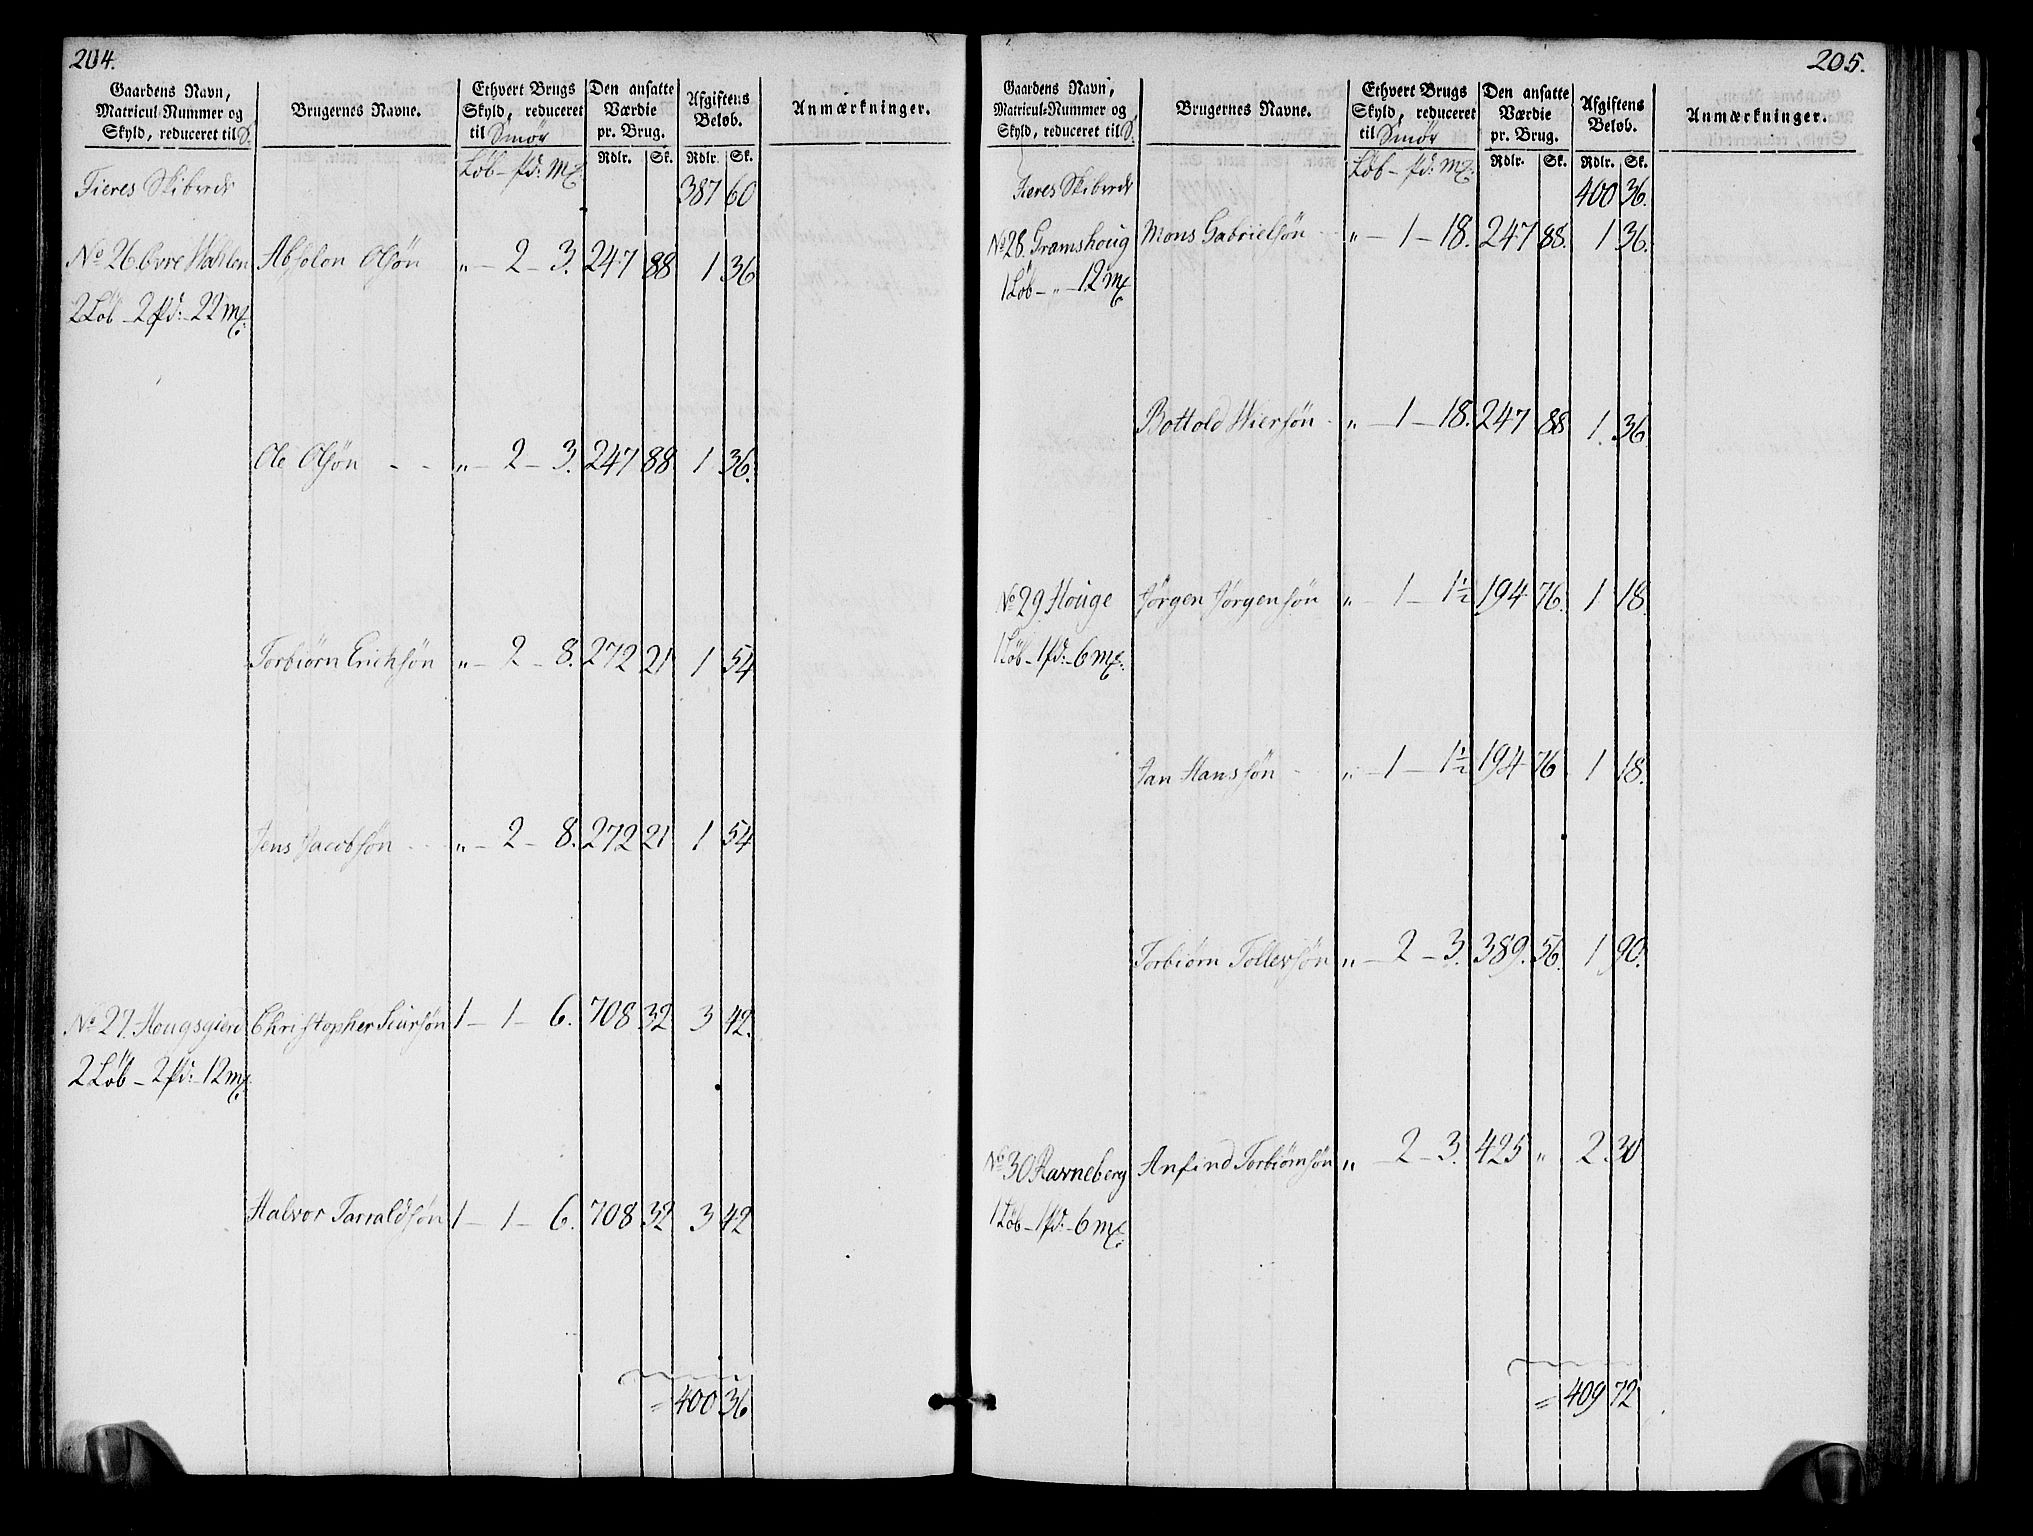 204.
Gaardens Navn, Matricul-Nummer og Skyld, reduceret til S. | Brugernes Navne. | Ethvert Brugs Skyld, reduceret til Smør | Den ansatte Værdie pr. Brug. | Afgiftens Beløb. | Anmærkninger.
Løb - pd: mk: | Rdlr. | Sk. | Rdlr. | Sk.
Tieres Skibrede 387 60
No 26. Øvre Hatlen Absolon Olsøn „ - 2 - 3. 247 88 1 36
2 Løb - 2 pd: - 22 mk:
Ole Olsøn - - „ - 2 - 3. 247 88 1 36.
Torbiørn Erichsøn „ - 2 - 8. 272 21 1 54
Jens Jacobsøn - - „ - 2 - 8. 272 21 1 54
No 27. Hougsgierd Christopher Siursøn 1 - 1 - 6. 708 32 3 42.
2 Løb - 2 pd: - 12 mk:
Halvor Tarraldsøn 1 - 1 - 6. 708 32 3 42
= 400 36
205.
Gaardens Navn, Matricul-Nummer og Skyld, reduceret til S. | Brugernes Navne. | Ethvert Brugs Skyld, reduceret til Smør | Den ansatte Værdie pr. Brug. | Afgiftens Beløb. | Anmærkninger.
Løb - pd: mk: | Rdlr. | Sk. | Rdlr. | Sk.
Tieres Skibrede 400 36.
No 28. Gramshoug Mons Gabrielsøn - „ - 1 - 18. 247 88. 1 36.
1 Løb - „ - 12 mk
Bottold Wiersøn - „ - 1 - 18. 247 88 1. 36
No 29. Houge Jørgen Jørgensøn „ - 1 - 1½ 194 76. 1 18
1 Løb - 1 pd: - 6 mk:
Jan Hanssøn - „ - 1 - 1½ 194 76 1 18.
Torbiørn Tollevsøn „ - 2 - 3. 389. 56. 1 90.
No 30 Ravneberg Anfind Torbiørnsøn „ - 2 - 3. 425 „ 2 30
1 Løb - 1 pd: - 6 mk:
= 409 72